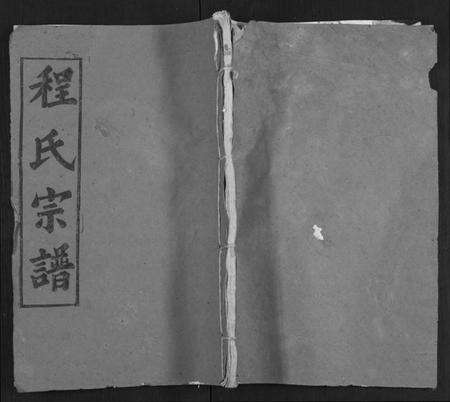 程氏宗譜